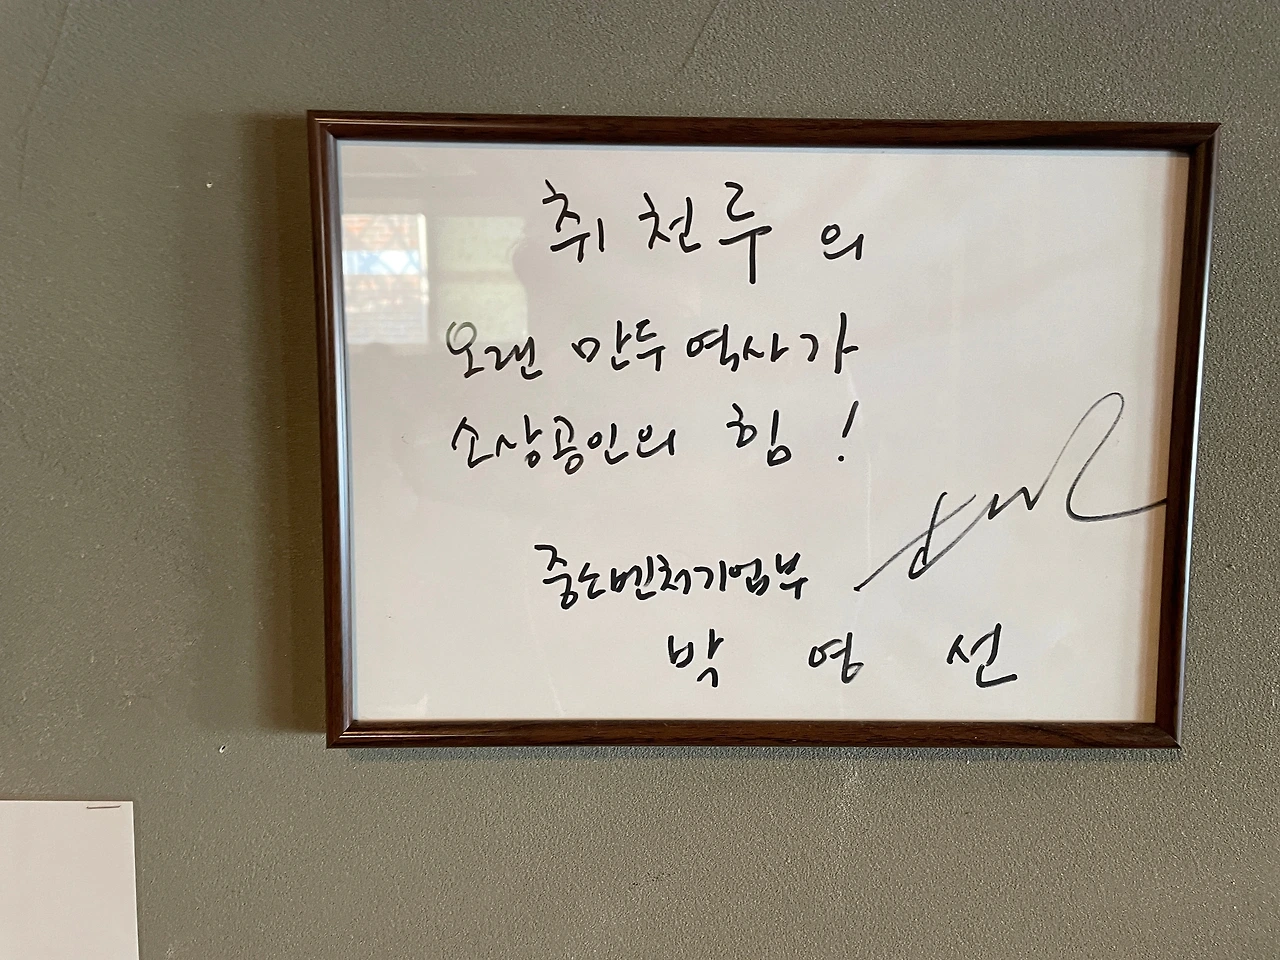 취천루의
오랜 만두 역사가
소상공인의 힘!
중소벤처기업부
박 영 선